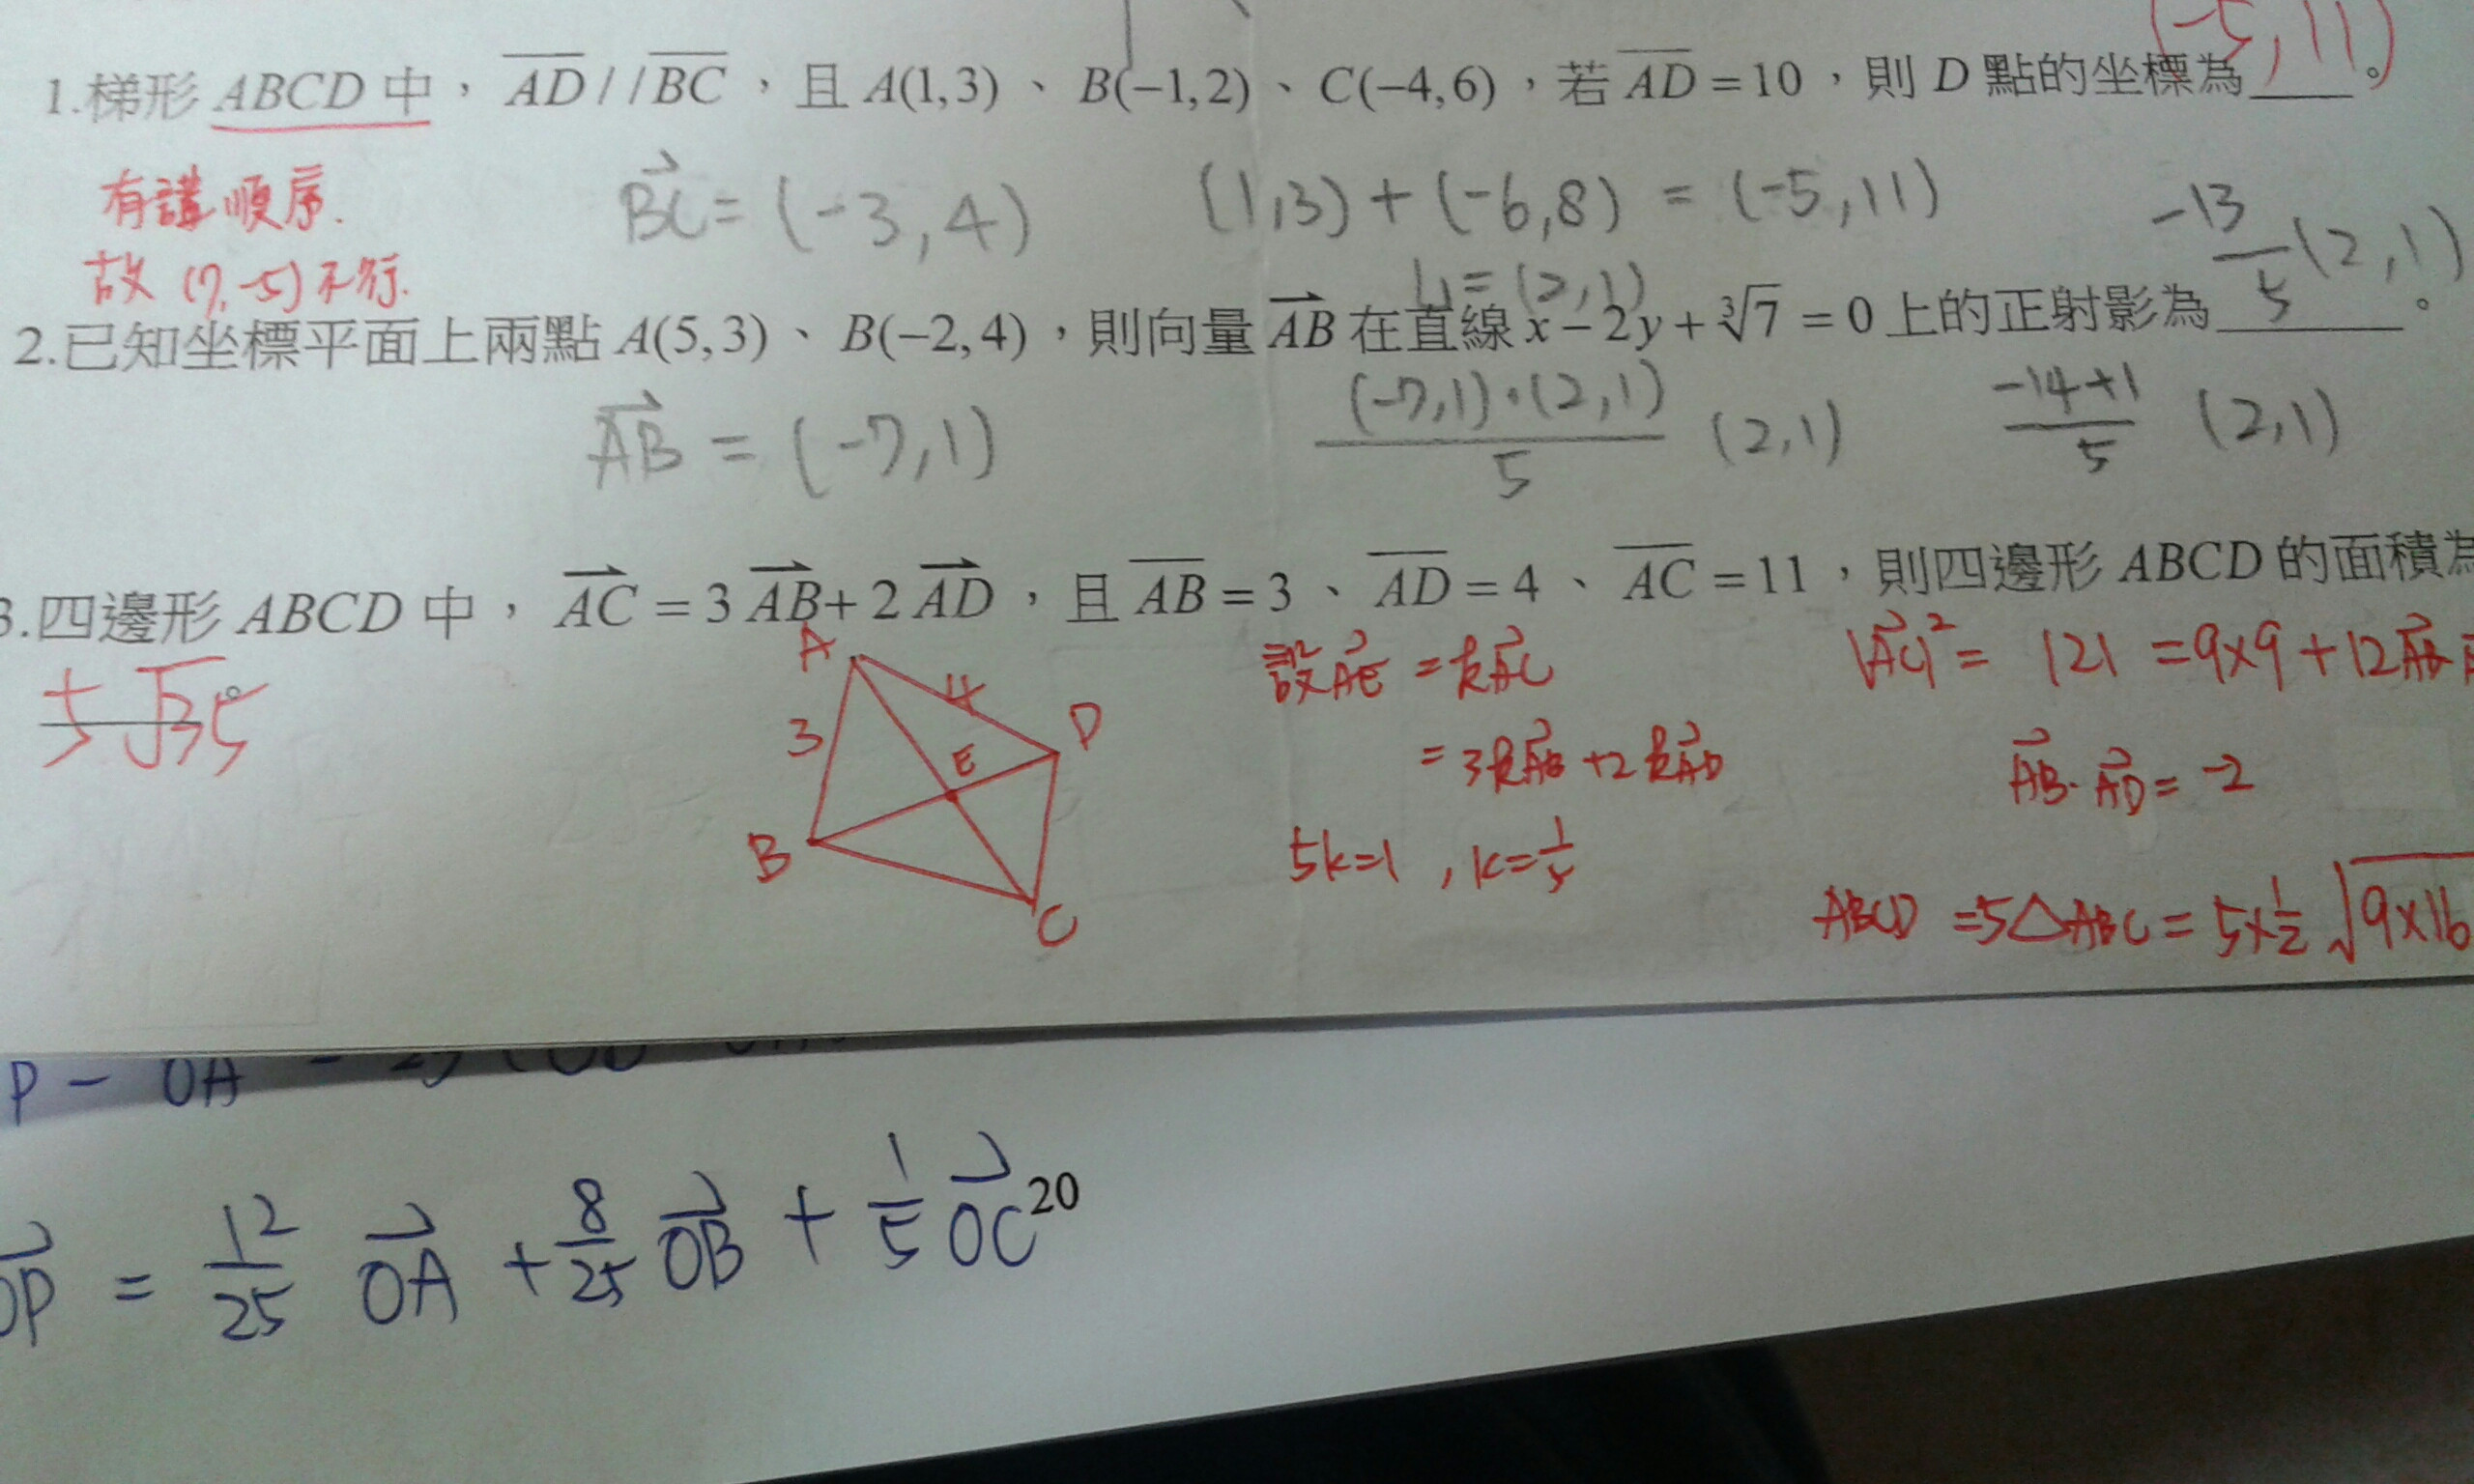 (-5,11)
1.梯形 ABCD 中，AD//BC，且 A(1,3)、B(−1,2)、C(−4,6)，若 AD=10，則 D 點的坐標為____。
有講順序.
故 (7,-5) 不行.
BC = (-3,4)
(1,3)+(-6,8) = (-5,11)
-13/5 (2,1)
L = (2,1)
2.已知坐標平面上兩點 A(5,3)、B(−2,4)，則向量 AB 在直線 x−2y+∛7=0 上的正射影為____。
AB = (-7,1)
(-7,1)·(2,1)/5 (2,1)
-14+1/5 (2,1)
3.四邊形 ABCD 中，AC=3AB+2AD，且 AB=3、AD=4、AC=11，則四邊形 ABCD 的面積為
5√35
。
A
4
D
3
E
B
C
設AE = kAC
= 3kAB+2kAD
5k=1, k=1/5
|AC|² = 121 = 9×9+12AB·
AB·AD = -2
ABCD =5△ABC = 5×1/2 √9×16
P - OA
OP = 12/25 OA + 8/25 OB + 1/5 OC
20